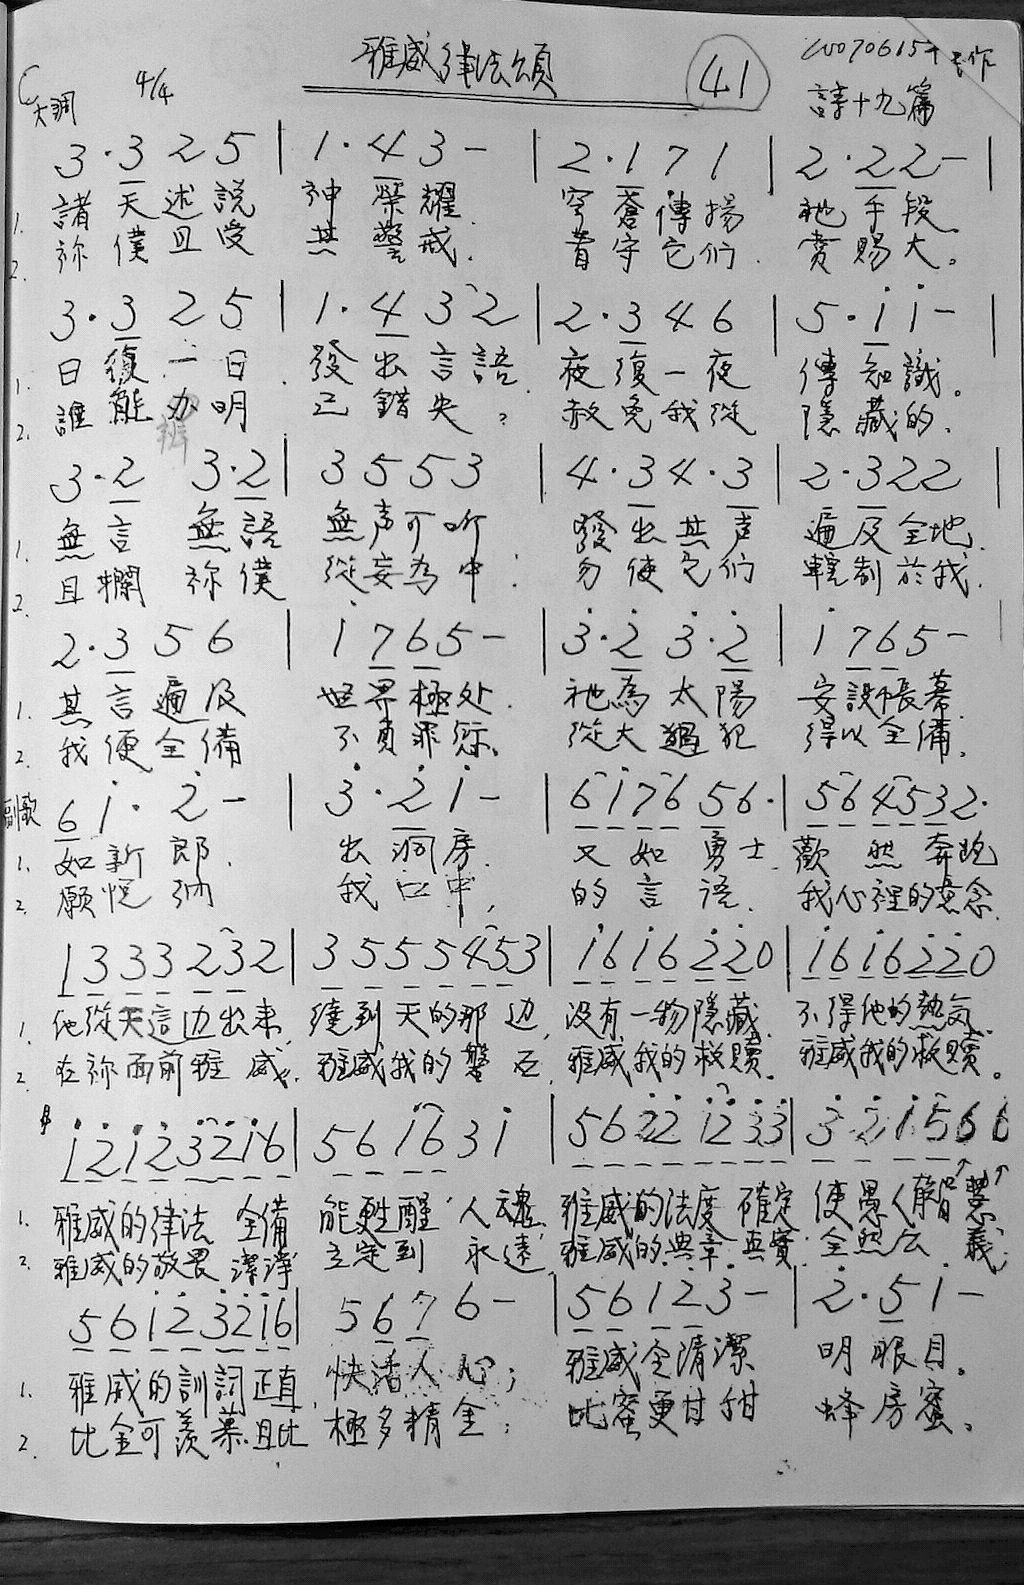 雅威律法頌 41
C大調 4/4 詩十九篇
3·3 2 5 | 1·4 3 - | 2·1 7 1 | 2·2 2 - |
1. 諸天述說 神榮耀. 穹蒼傳揚 祂手段.
2. 祢僕且受 其警戒. 着守它们. 賞賜大。
3·3 2 5 | 1·4 3 2 | 2·3 4 6 | 5·1 1 - |
1. 日復一日. 發出言語. 夜復一夜 傳知識。
2. 誰能办明 己錯失? 赦免我從 隱藏的.
辨
3·2 3·2 | 3 5 5 3 | 4·3 4·3 | 2·3 2 2 |
1. 無言 無語 無声可听 發出其声 遍及全地.
2. 且攔 祢僕 從妄為中. 勿使它们 轄制於我.
2·3 5 6 | 1 7 6 5 - | 3·2 3·2 | 1 7 6 5 -
1. 其言遍及 世界極处. 祂為太陽 安設帳幕
2. 我便全備 不負罪愆。 從大過犯 得以全備.
副歌 6 1· 2 - | 3·2 1 - | 6 1 7 6 5 6· | 5 6 4 5 3 2·
1. 如新郎. 出洞房. 又如勇士. 歡然奔跑
2. 願悅纳 我口中, 的言语. 我心裡的意念.
1 3 3 3 2 3 2 | 3 5 5 5 4 5 3 | 1 6 1 6 2 2 0 | 1 6 1 6 2 2 0
1. 他從天這边出来, 繞到天的那边, 没有一物隱藏. 不得他的熱気.
2. 在祢面前雅威. 雅威我的磐石 雅威我的救贖. 雅威我的救贖。
1 2 1 2 3 2 1 6 | 5 6 1 6 3 1 | 5 6 2 2 1 2 3 3 | 3 2 1 5 6 6
1. 雅威的律法 全備 能甦醒 人魂. 雅威的法度 確定 使愚人有智慧.
2. 雅威的敬畏 潔淨 立定到 永遠. 雅威的典章 真實. 全然公義;
5 6 1 2 3 2 1 6 | 5 6 7 6 - | 5 6 1 2 3 - | 2·5 1 -
1. 雅威的訓詞正直, 快活人心; 雅威全清潔 明眼目。
2. 比金可羨慕且比 極多精金; 比蜜更甘甜 蜂房蜜。